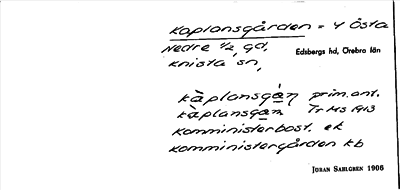 Kaplansgården = Y Östa
Nedre 1/2, gd,
Edsbergs hd, Örebro län
Knista sn,
kàplansgán prim. ant.
kàplansgan Tr Ms 1913
komministerbost. ek
komministergården kb
JÖRAN SAHLGREN 1906